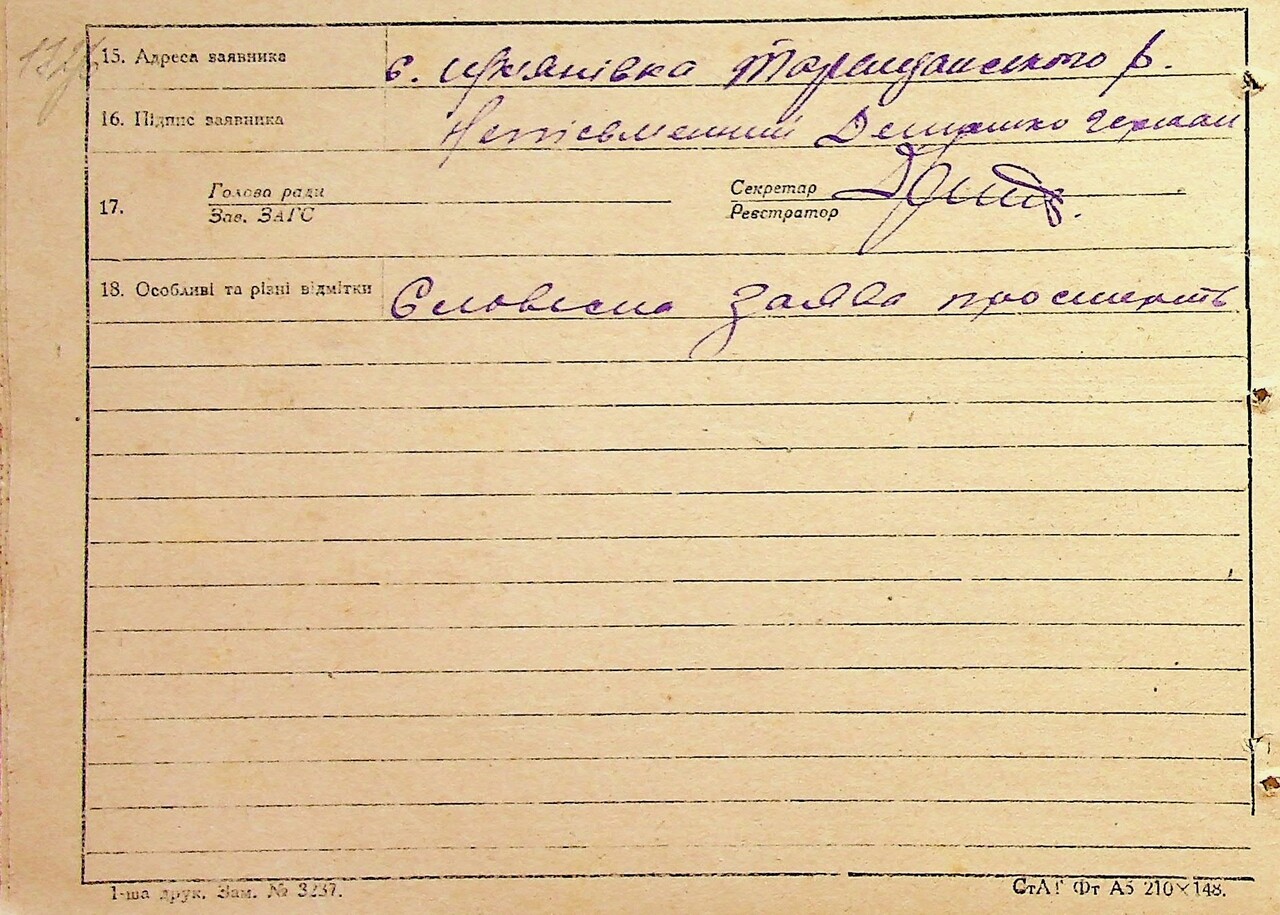 15. Адреса заявника с. Лук'янівка Таращанського р.
16. Підпис заявника Неписьменний Демешко Герман
17. Голова ради
Зав. ЗАГС
Секретар
Реєстратор
18. Особливі та різні відмітки Словесна заява про смерть
1-ша друк. Зам. № 3237.
СтАТ Фт А5 210×148.